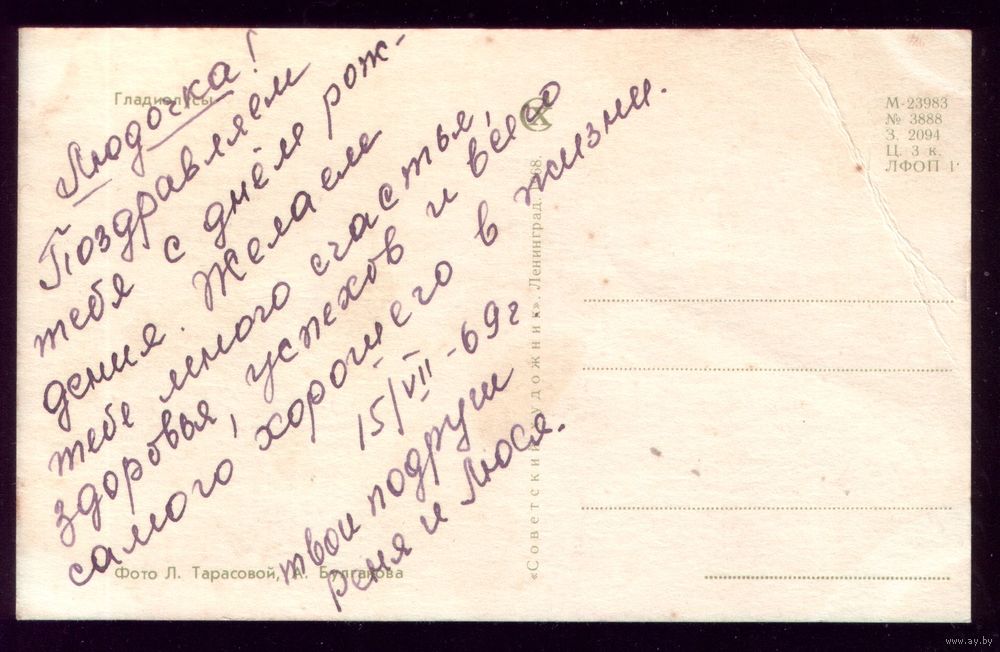 Гладиолусы
Людочка!
Поздравляем
тебя с днём рож-
дения. Желаем
тебе много счастья,
здоровья, успехов и всего
самого хорошего в жизни.
15/VII-69г.
твои подруги
и Люся.
Фото Л. Тарасовой, А. Булгакова
«Советский художник». Ленинград. 1968.
М-23983
№ 3888
З. 2094
Ц. 3 к.
ЛФОП 1
www.ay.by